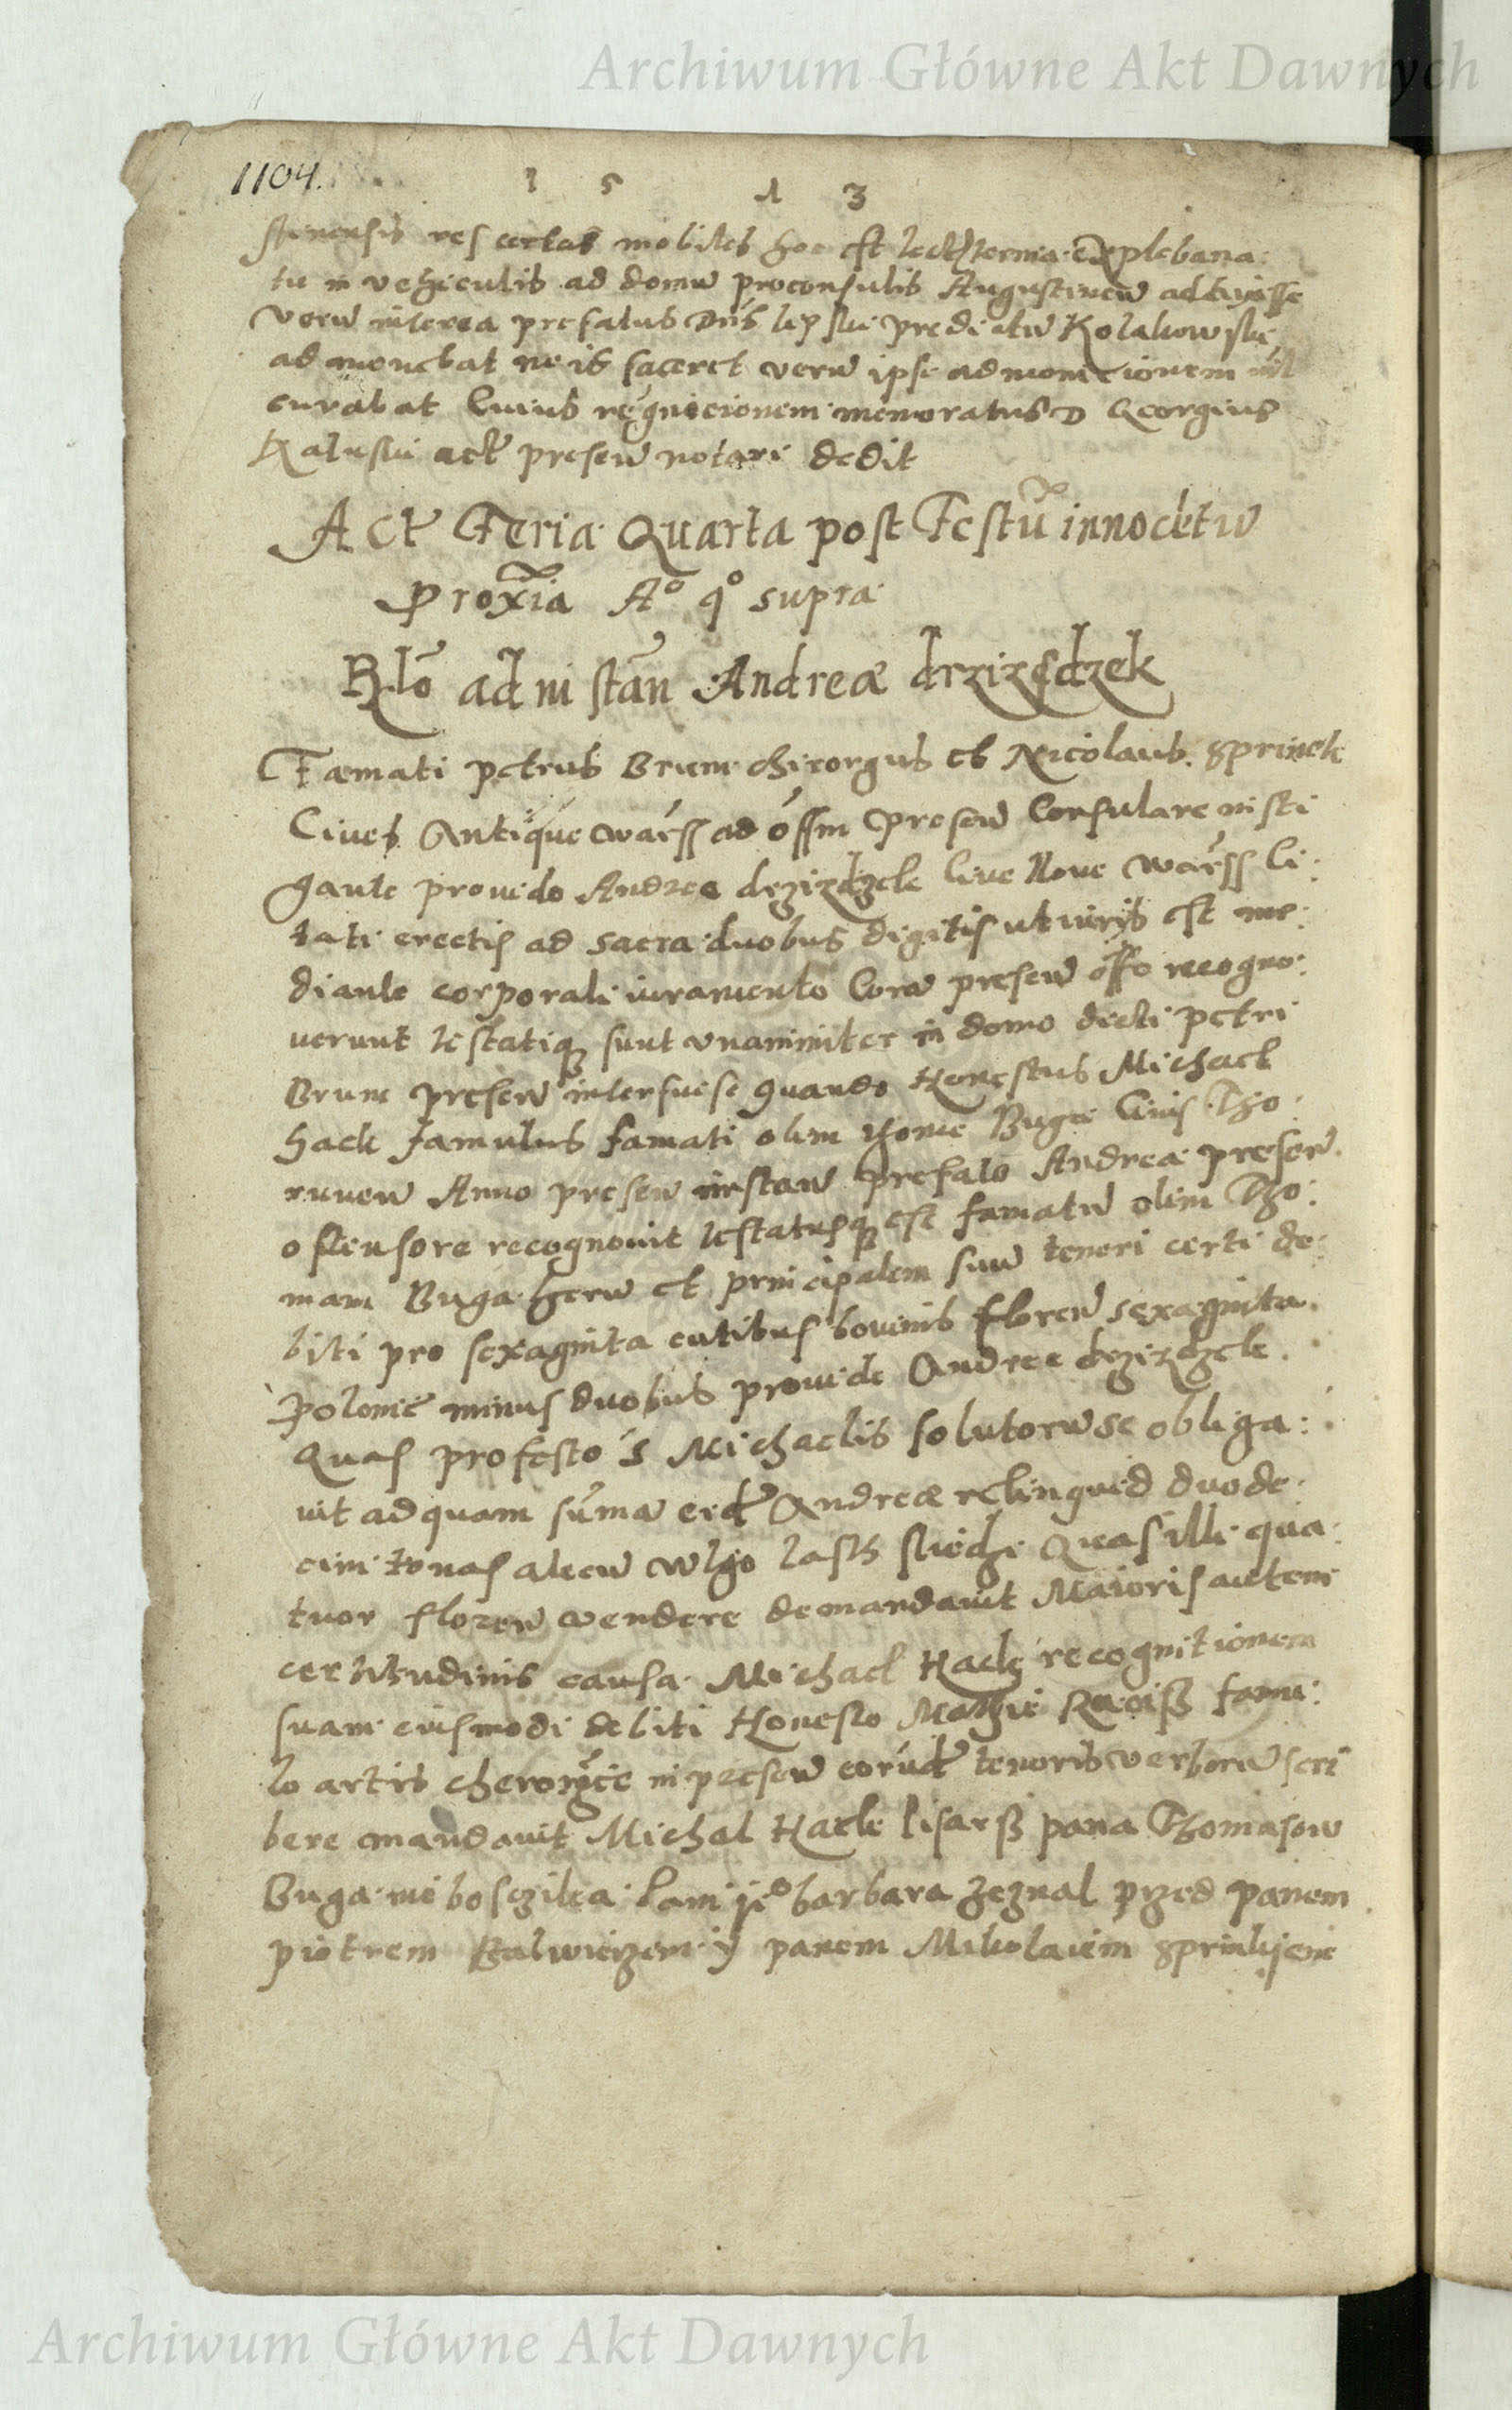 Archiwum Główne Akt Dawnych
1104.
1 5 1 3
stinensis res certas mobiles hoc est lecthisternia ex plebana:
tu in vehiculis ad domũ proconsulis Augustineñ advixisse
verũ interea prefatus Dñs lepski predictũ Kolakowski
admonebat ne is faceret verũ ipse admonicionem nil
curabat Cuius regnicionem memoratus D Georgius
Kaluski act preseñ notari dedit
Act Feria Quarta post Festũ innocẽtiũ
Proxĩa Aº qº supra
Rtõ ad instãn Andreæ drzizędzek
Famati petrus Brum chirorgus et Nicolaus sprinek
Cives Antique warss ad offm preseñ Consulare insti
gante provido Andrea drzizdzek Cive Nove warss Ci:
tati erectis ad sacra duobus digitis ut iuris est me:
diante corporali iuramento Corã preseñ offo recogno:
verunt testatiq sunt unanimiter in domo dicti petri
Brum preseñ interfuise quando Honestus Michael
hack famulus famati olim Thome Buga Civis Tho:
runeñ Anno preseñ instan prefato Andrea preseñ
ostensore recognovit testatusq est famatũ olim Tho:
mam Buga herũ et principalem suũ teneri certi de:
biti pro sexaginta cutibus bovinis floreñ sexaginta
Polonic̃ minus duobus provide Andree drzizdzek
Quas profesto S Michaelis solutorũ se obliga:
vit ad quam sũmã eid Andreæ relinquid duode:
cim tonas alecũ wlgo lasth sledzi Quas illi qua:
tuor floreñ wendere demandavit Maioris autem
certitudinis causa Michael Hack recognitionem
suam eiusmodi debiti Honesto Mathie famu:
lo artis cherorgice in preseñ eorund tenoris verborũ scri
bere mandavit Michal Hack pisarß pana Thomasow
Buga nieboszika tam jº barbara zeznal przed panem
piotrem Balwierzem y panem Mikolaiem sprinkjem
Archiwum Główne Akt Dawnych